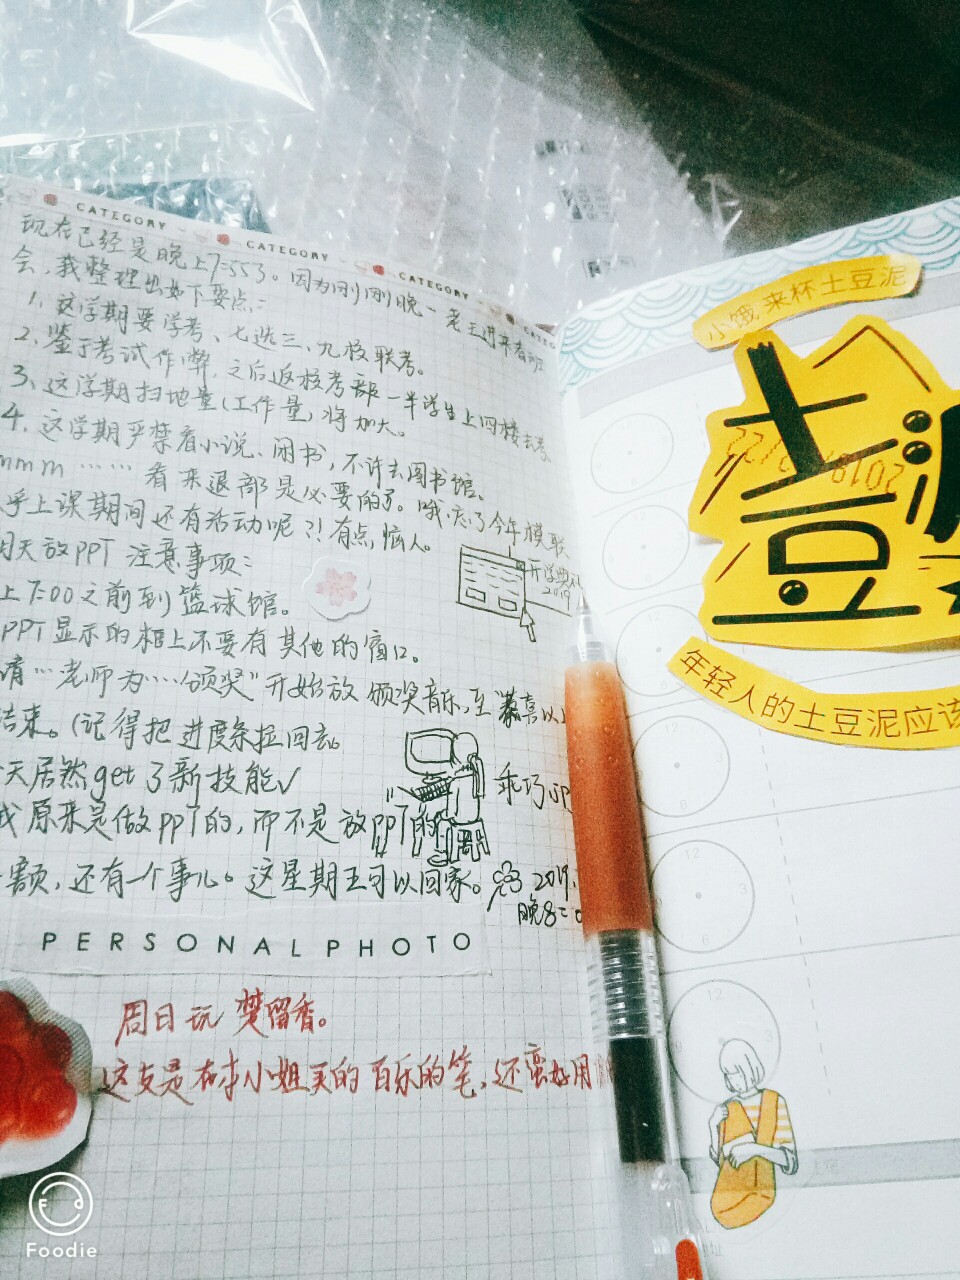 CATEGORY
CATEGORY
CATEGORY
现在已经是晚上7:553。因为刚刚晚一老王进来看班
会,我整理出如下要点:
1、这学期要学考、七选三、九校联考。
2、鉴于考试作弊,之后返校考都一半学生上四楼去考
3、这学期扫地量(工作量)将加大。
4、这学期严禁看小说、闲书,不许去图书馆。
mmm……看来退部是必要的了。哦,忘了今年模联
乎上课期间还有活动呢?!有点,恼人。
天放PPT注意事项:
上7:00之前到篮球馆。
开学典
2019
PPT显示的框上不要有其他的窗口。
请…老师为……颁奖"开始放颁奖音乐,至
结束。(记得把进度条拉回去
天居然get了新技能√
我原来是做PPT的,而不是放PPT的
乖巧.jp
额,还有一个事儿。这星期五可以回家。
2019.
晚8:0
PERSONAL PHOTO
周日玩楚留香。
这支是在李小姐买的百乐的笔,还蛮好用
小饿来杯土豆泥
土
豆
2018
年轻人的土豆泥应该
12
3
6
Foodie